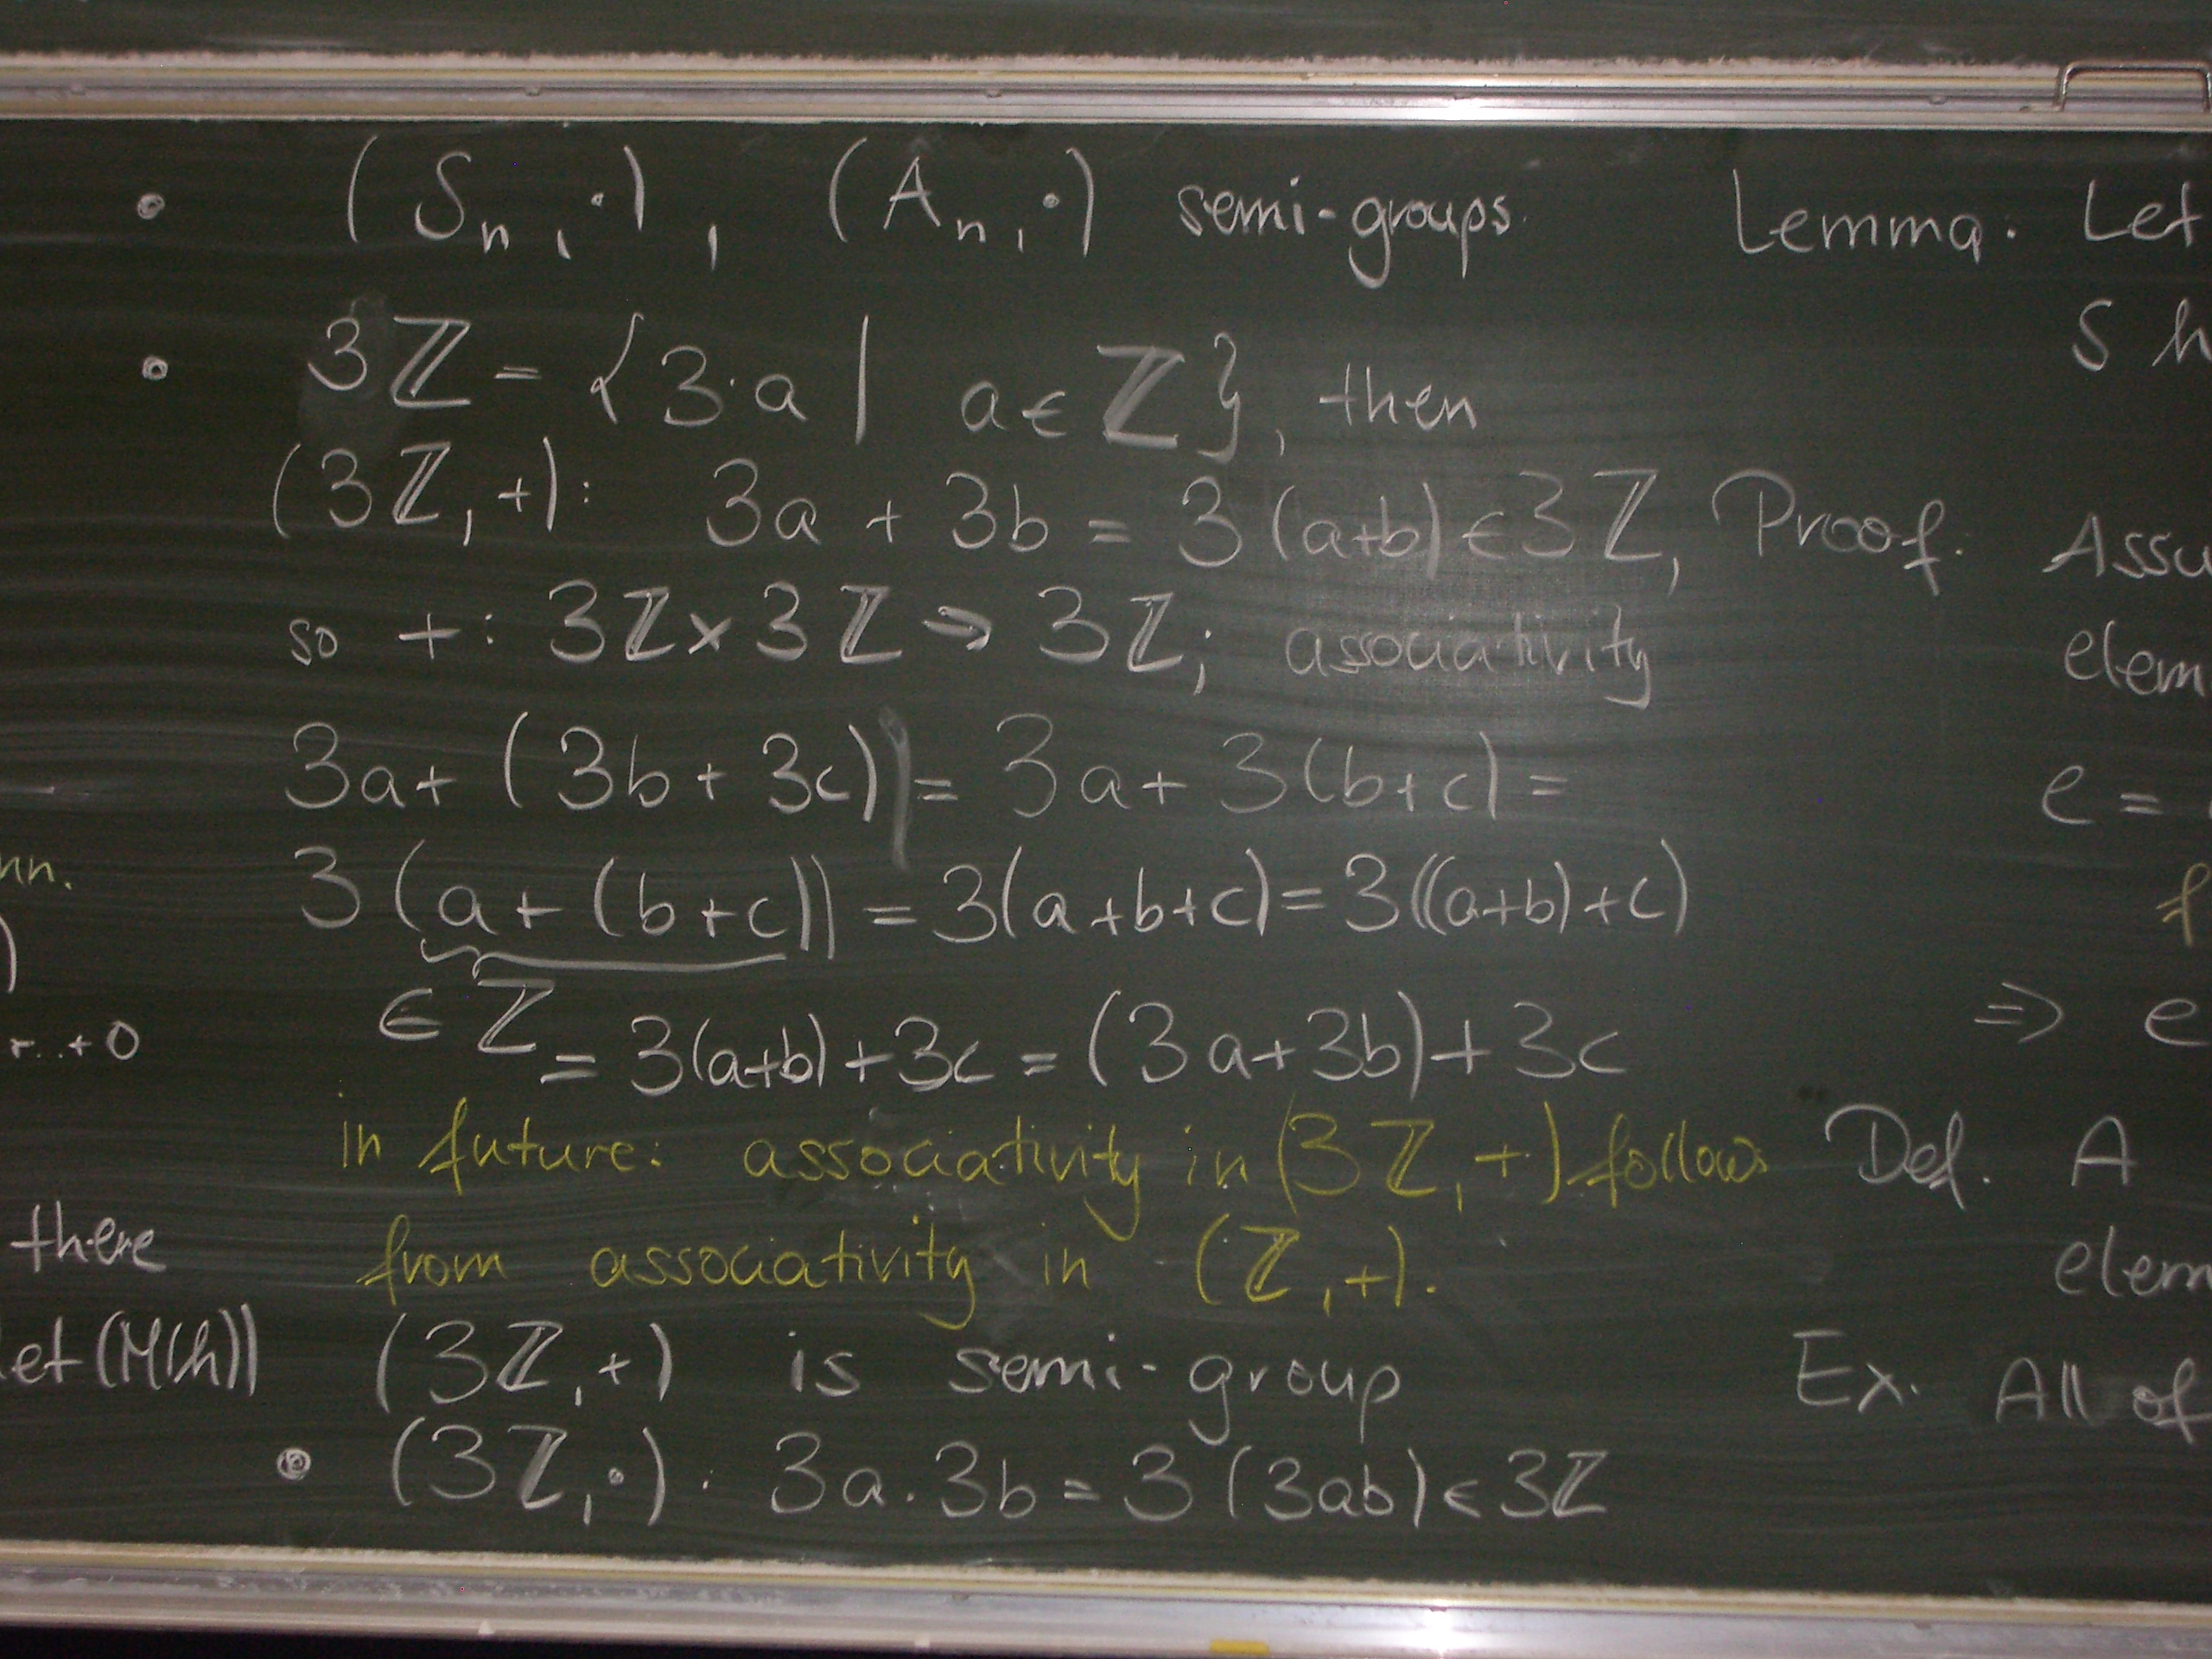 • (Sₙ, ·), (Aₙ, ·) semi-groups.
• 3ℤ = {3·a | a ∈ ℤ}, then
(3ℤ, +): 3a + 3b = 3(a+b) ∈ 3ℤ,
so +: 3ℤ × 3ℤ → 3ℤ; associativity
3a + (3b + 3c) = 3a + 3(b+c) =
3(a + (b+c)) = 3(a+b+c) = 3((a+b)+c)
∈ ℤ
= 3(a+b) + 3c = (3a+3b) + 3c
in future: associativity in (3ℤ, +) follows
from associativity in (ℤ, +).
(3ℤ, +) is semi-group
• (3ℤ, ·): 3a · 3b = 3(3ab) ∈ 3ℤ
+ 0
there
et (M(h))
Lemma: Let
S h
Proof.
elem
e =
f
⇒ e
Def. A
elem
Ex. All of